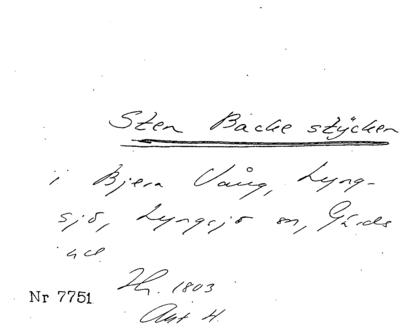 Sten Backe stycken
i Bjera Vång, Lyng-
sjö, Lyngsjö sn, Gärds
hd.
Nr 7751 Jb. 1803
Akt 4.